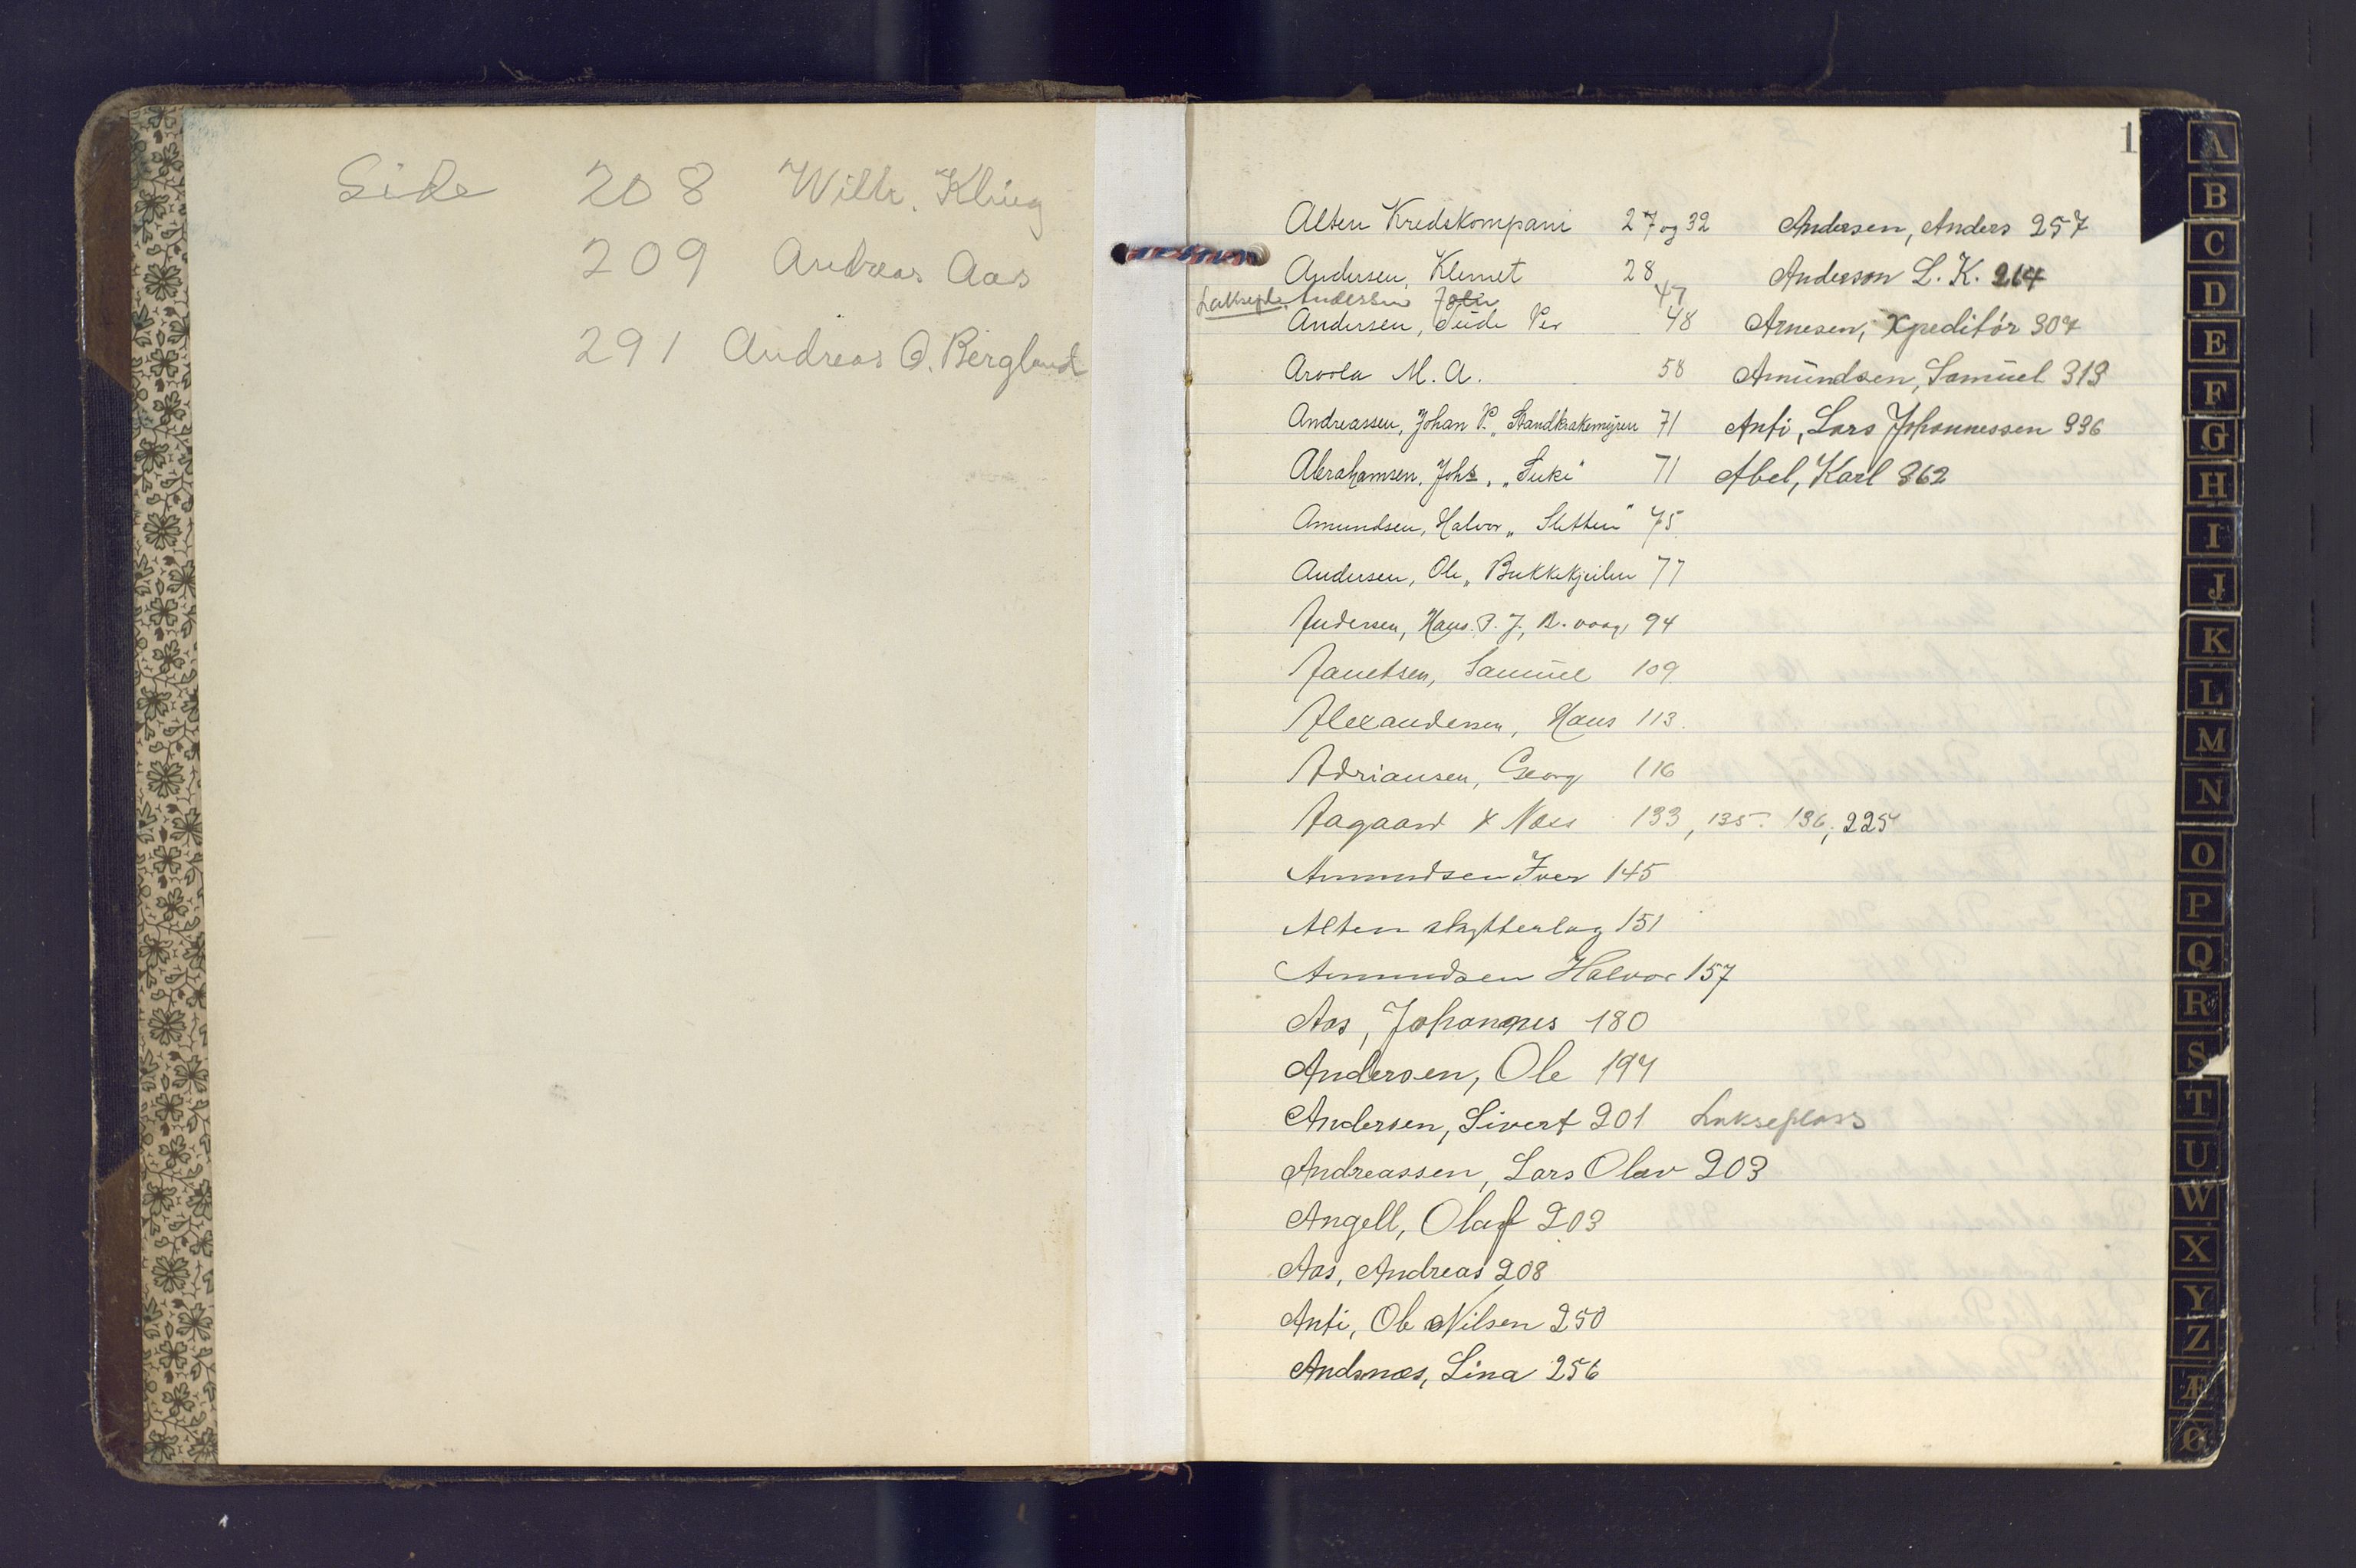 Side 208 Wilh. Klüg
209 Andreas Aas
291 Andreas O. Bergland
1
Alten Kredskompani 27 og 32
Andersen, Klemet 28
Laksepl. Andersen 47
Andersen, Per 48
Arvola M. A. 58
Andreassen, Johan P. „Strandkrakemyren 71
Abrahamsen, Johs. „Suki" 71
Amundsen, Halvor „Sletten" 75
Andersen, Ole „Bukkekjeilen 77
Andersen, Hans P. J., R. vaag 94
Samuel 109
Alexandersen, Hans 113.
Adriansen, Georg 116
Aagaard & Næss 133, 135. 136, 225
Amundsen Iver 145
Alten skytterlag 151
Amundsen Halvor 157
Aas, Johannes 180
Andersen, Ole 194
Andersen, Sivert 201 Lakseplass
Andreassen, Lars Olav 203
Angell, Olaf 203
Aas, Andreas 208
Anti, Ole Nilsen 250
Andsnæs, Lina 256
Andersen, Anders 257
Anderson L. K. 264
Arnesen, Xpeditör 307
Amundsen, Samuel 313
Anti, Lars Johannessen 336
Abel, Karl 362
A
B
C
D
E
F
G
H
I
J
K
L
M
N
O
P
Q
R
S
T
U
W
X
Y
Z
Æ
Ø